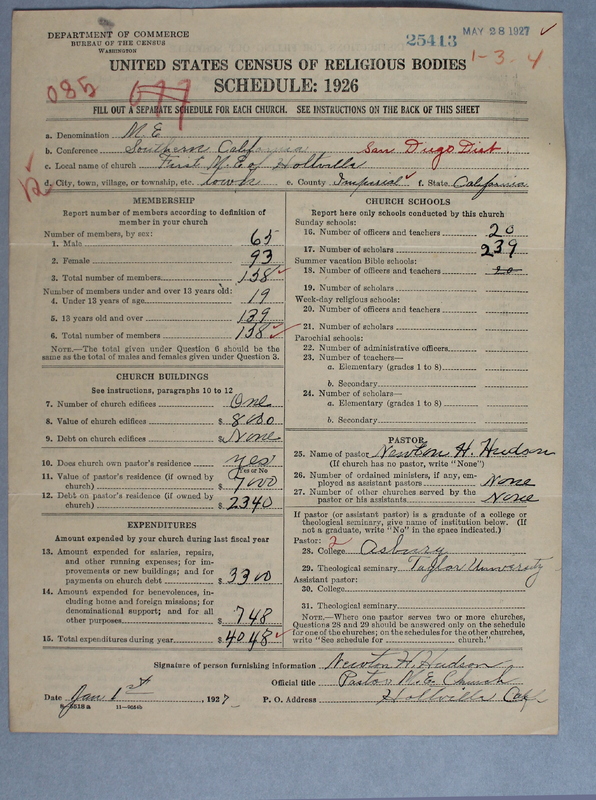 DEPARTMENT OF COMMERCE
BUREAU OF THE CENSUS
WASHINGTON
25413
MAY 28 1927
1-3-4
UNITED STATES CENSUS OF RELIGIOUS BODIES
SCHEDULE: 1926
085
677
FILL OUT A SEPARATE SCHEDULE FOR EACH CHURCH. SEE INSTRUCTIONS ON THE BACK OF THIS SHEET
a. Denomination M.E.
b. Conference Southern California San Diego Dist.
c. Local name of church First M.E. of Holtville
d. City, town, village, or township, etc. town e. County Imperial f. State California
MEMBERSHIP
Report number of members according to definition of member in your church
Number of members, by sex:
1. Male 65
2. Female 93
3. Total number of members 158
Number of members under and over 13 years old:
4. Under 13 years of age 19
5. 13 years old and over 139
6. Total number of members 158
NOTE.—The total given under Question 6 should be the same as the total of males and females given under Question 3.
CHURCH BUILDINGS
See instructions, paragraphs 10 to 12
7. Number of church edifices One
8. Value of church edifices $ 8000
9. Debt on church edifices $ None
10. Does church own pastor's residence yes
Yes or No
11. Value of pastor's residence (if owned by church) $ 7000
12. Debt on pastor's residence (if owned by church) $ 2340
EXPENDITURES
Amount expended by your church during last fiscal year
13. Amount expended for salaries, repairs, and other running expenses; for improvements or new buildings; and for payments on church debt $ 3300
14. Amount expended for benevolences, including home and foreign missions; for denominational support; and for all other purposes $ 748
15. Total expenditures during year $ 4048
CHURCH SCHOOLS
Report here only schools conducted by this church
Sunday schools:
16. Number of officers and teachers 20
17. Number of scholars 239
Summer vacation Bible schools:
18. Number of officers and teachers 20
19. Number of scholars
Week-day religious schools:
20. Number of officers and teachers
21. Number of scholars
Parochial schools:
22. Number of administrative officers
23. Number of teachers—
a. Elementary (grades 1 to 8)
b. Secondary
24. Number of scholars—
a. Elementary (grades 1 to 8)
b. Secondary
PASTOR
25. Name of pastor Newton H. Hudson
(If church has no pastor, write "None")
26. Number of ordained ministers, if any, employed as assistant pastors None
27. Number of other churches served by the pastor or his assistants None
If pastor (or assistant pastor) is a graduate of a college or theological seminary, give name of institution below. (If not a graduate, write "No" in the space indicated.)
Pastor: 2
28. College Asbury
29. Theological seminary Taylor University
Assistant pastor:
30. College
31. Theological seminary
NOTE.—Where one pastor serves two or more churches, Questions 28 and 29 should be answered only on the schedule for one of the churches; on the schedules for the other churches, write "See schedule for church."
Signature of person furnishing information Newton H. Hudson
Official title Pastor M.E. Church
Date Jan 1st, 1927 P. O. Address Holtville Calif
8-5518 a